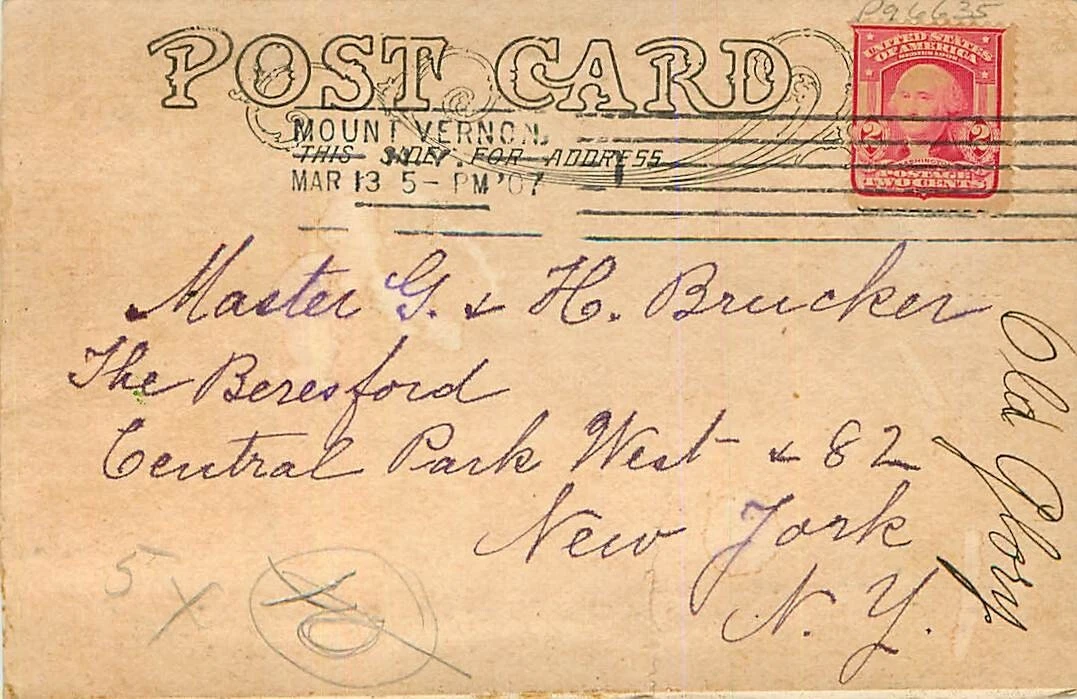 P96635
POST CARD
UNITED STATES
OF AMERICA
2 2
POSTAGE
TWO CENTS
MOUNT VERNON,
THIS SIDE FOR ADDRESS
MAR 13 5 - PM '07
Master G. & H. Brucker
The Beresford
Central Park West & 82
New York
N. Y.
Old Glory
5 X